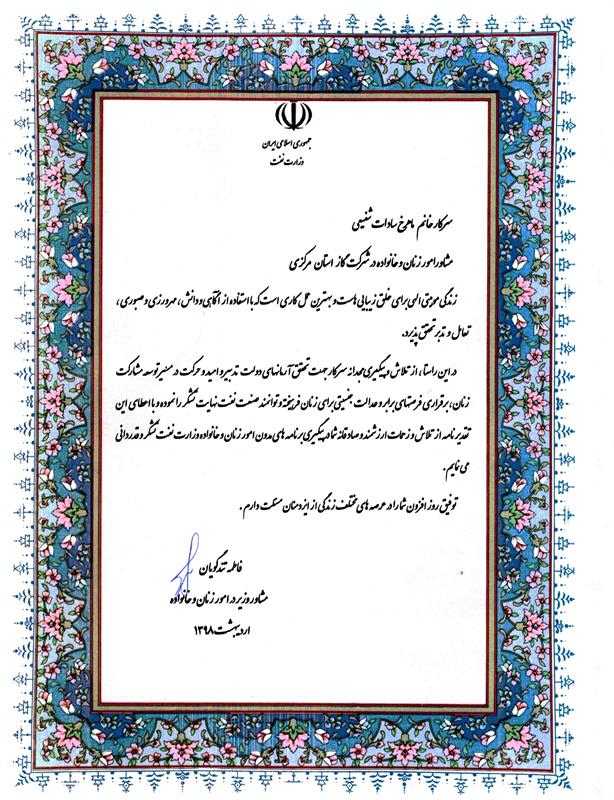 جمهوری اسلامی ایران
وزارت نفت
سرکار خانم ماهرخ سادات شفیعی
مشاور امور زنان و خانواده در شرکت گاز استان مرکزی
زندگی موهبتی الهی برای خلق زیبایی هاست و بهترین عمل کاری است که با استفاده از آگاهی و دانش، مهرورزی و صبوری،
تعامل و تدبر تحقق پذیرد.
در این راستا، از تلاش و پیگیری مجدانه سرکار جهت تحقق آرمانهای دولت تدبیر و امید و حرکت در مسیر توسعه مشارکت
زنان، برقراری فرصتهای برابر و عدالت جنسیتی برای زنان فرهیخته و توانمند صنعت نفت نهایت تشکر را نموده و با اعطای این
تقدیرنامه از تلاش و زحمات ارزشمند و صادقانه شما در پیگیری برنامه های مدون امور زنان و خانواده وزارت نفت تشکر و قدردانی
می نمایم.
توفیق روز افزون شما را در عرصه های مختلف زندگی از ایزد منان مسئلت دارم.
فاطمه تندگویان
مشاور وزیر در امور زنان و خانواده
اردیبهشت ۱۳۹۸